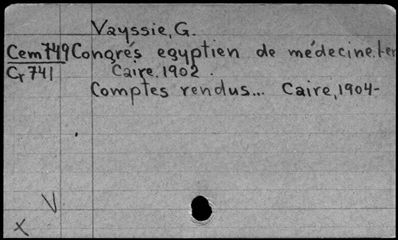 Vayssie, G.
Cem 749 Congrés egyptien de médecine. 1er
Cr 741 Caire, 1902.
Comptes rendus... Caire, 1904-
V
X